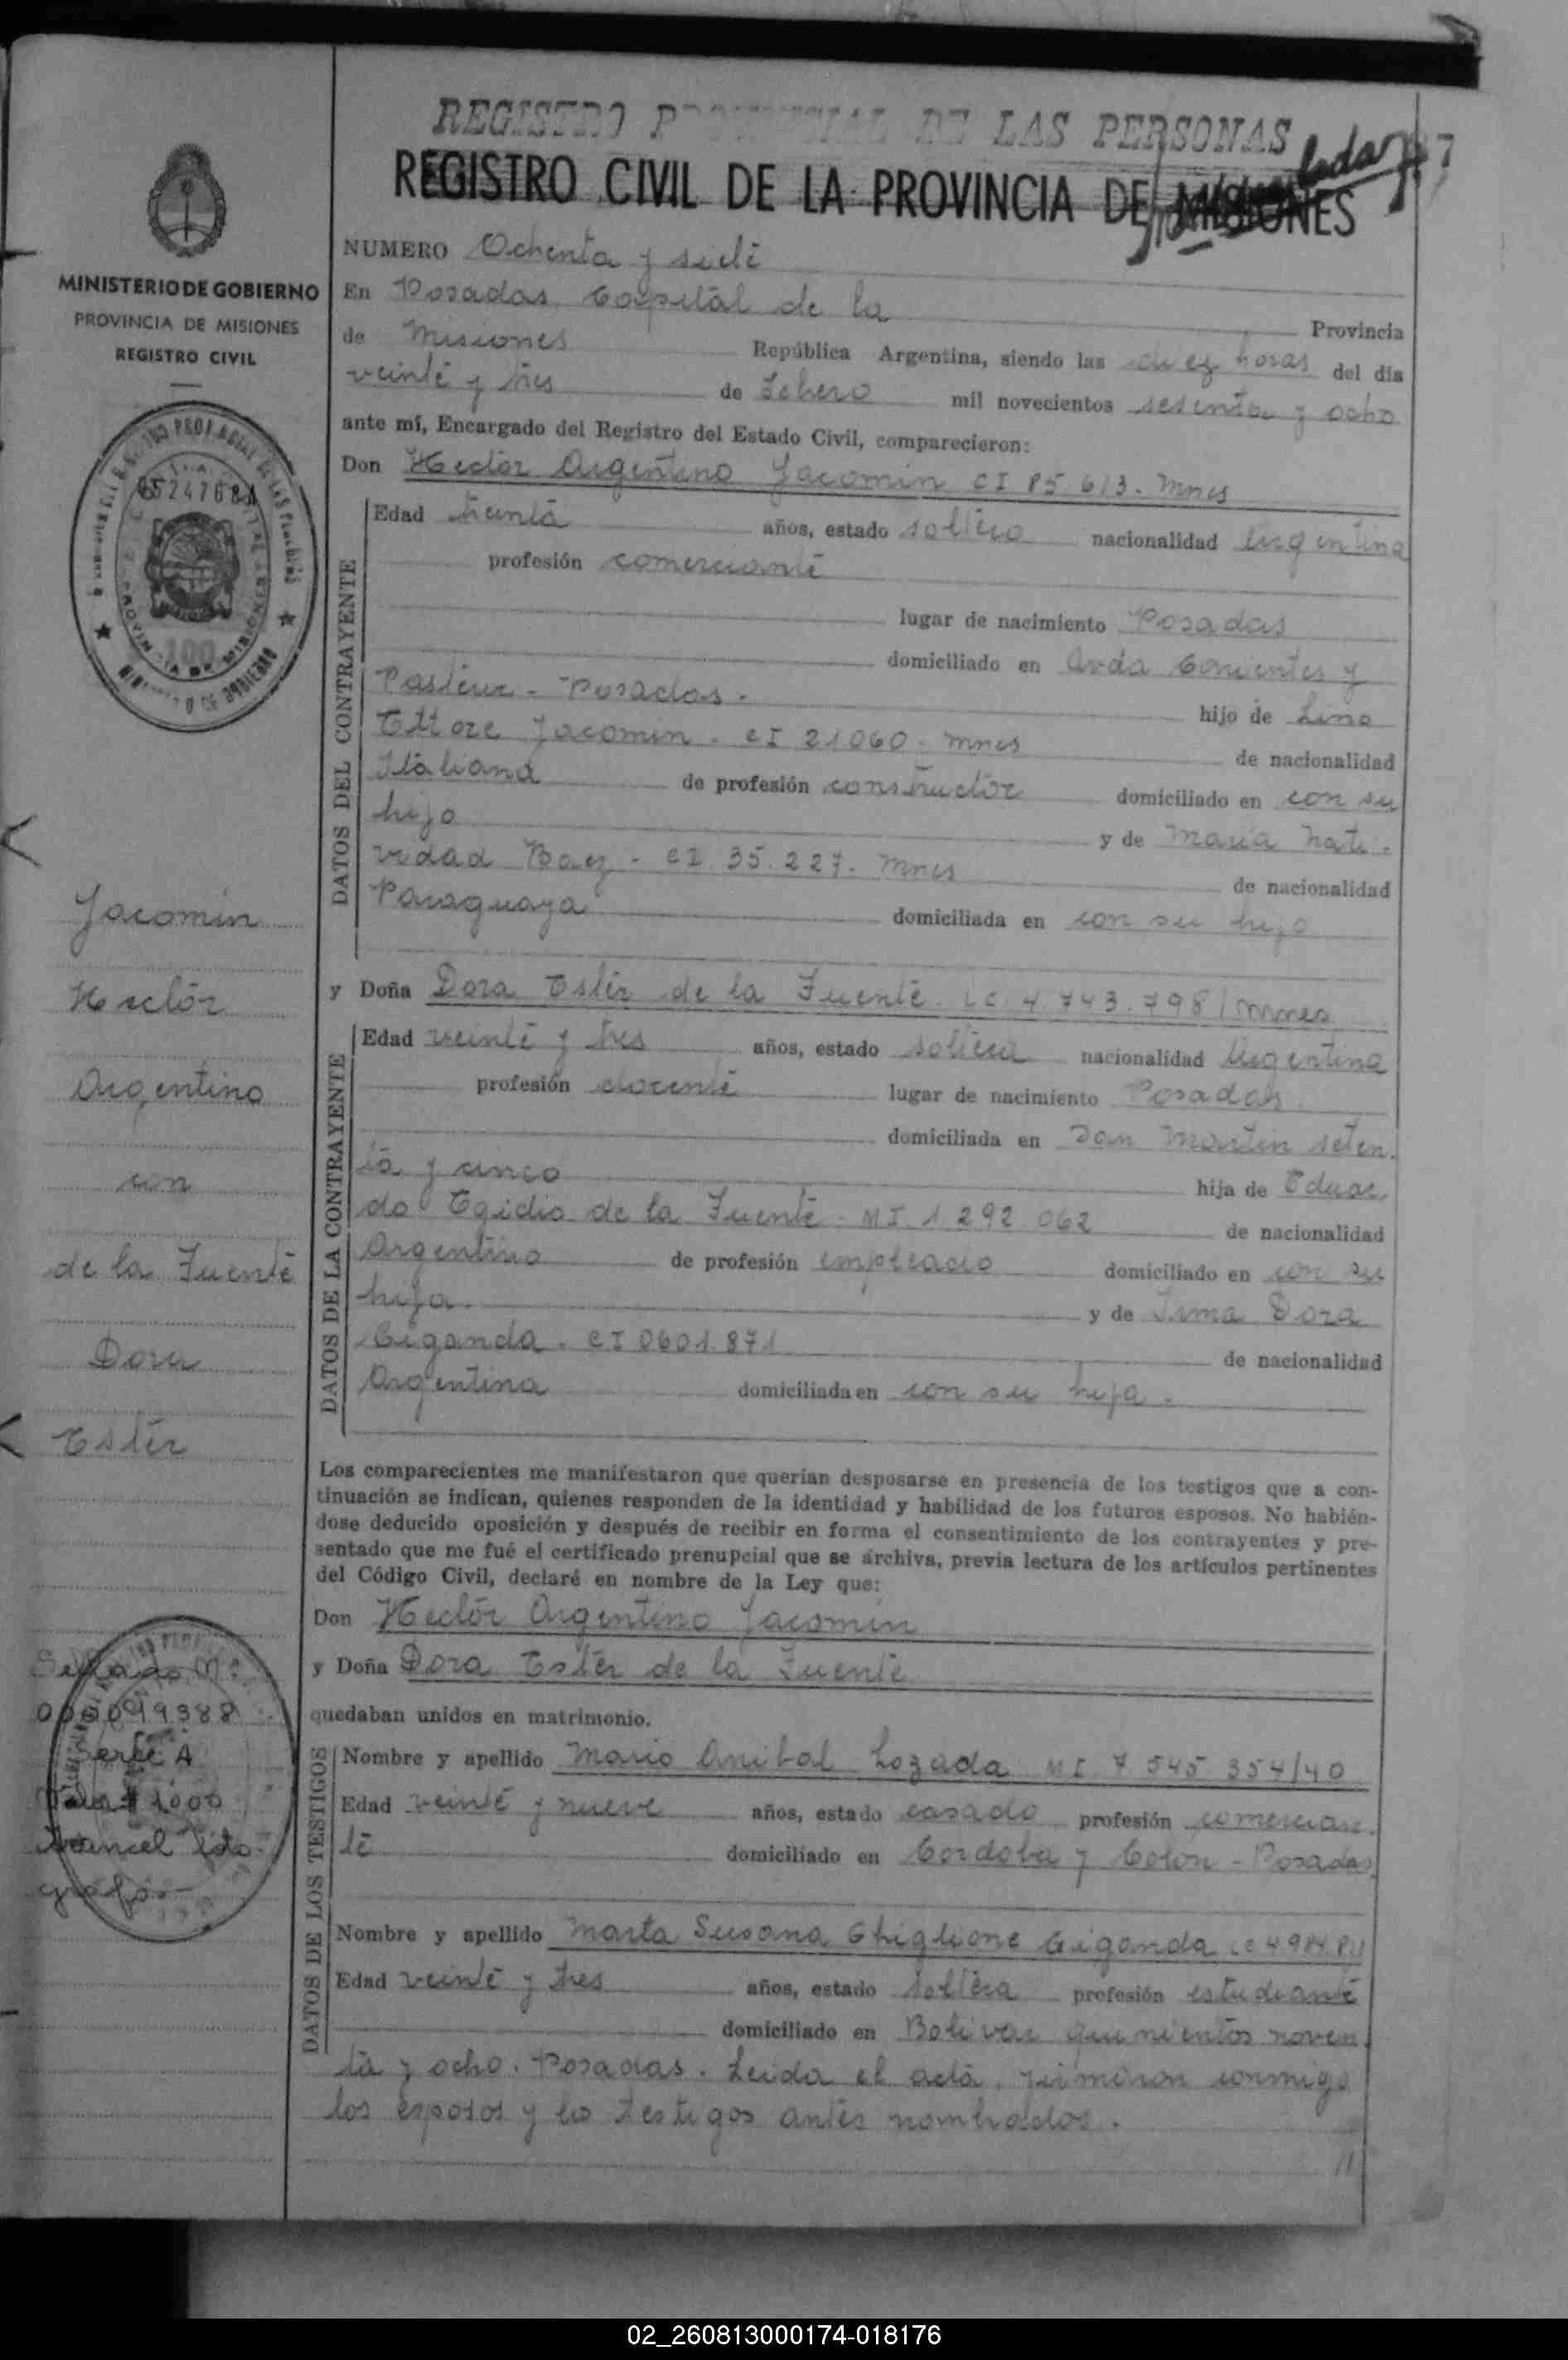 REGISTRO PROVINCIAL DE LAS PERSONAS
REGISTRO CIVIL DE LA PROVINCIA DE MISIONES
MINISTERIO DE GOBIERNO
PROVINCIA DE MISIONES
REGISTRO CIVIL
NUMERO Ochenta y siete
En Posadas Capital de la Provincia
de Misiones República Argentina, siendo las diez horas del día
veinte y tres de Febrero mil novecientos sesenta y ocho
ante mí, Encargado del Registro del Estado Civil, comparecieron:
Don Hector Argentino Jacomin CI 85.613. Mnes
DATOS DEL CONTRAYENTE
Edad treinta años, estado soltero nacionalidad Argentina
profesión comerciante
lugar de nacimiento Posadas
domiciliado en Avda Corrientes y
Pasteur - Posadas. hijo de Lino
Ettore Jacomin - CI 21060 - Mnes de nacionalidad
Italiana de profesión constructor domiciliado en con su
hijo y de Maria Nati-
vidad Baez - CI. 35.227. Mnes de nacionalidad
Paraguaya domiciliada en con su hijo
y Doña Dora Ester de la Fuente. LC. 4.743.798/Mnes
DATOS DE LA CONTRAYENTE
Edad veinte y tres años, estado soltera nacionalidad Argentina
profesión docente lugar de nacimiento Posadas.
domiciliada en San Martin seten-
ta y cinco hija de Eduar
do Egidio de la Fuente - MI. 1.292.062 de nacionalidad
Argentino de profesión empleado domiciliado en con su
hija. y de Irma Dora
Giganda. CI 0601.871 de nacionalidad
Argentina domiciliada en con su hija.
Los comparecientes me manifestaron que querían desposarse en presencia de los testigos que a con-
tinuación se indican, quienes responden de la identidad y habilidad de los futuros esposos. No habién-
dose deducido oposición y después de recibir en forma el consentimiento de los contrayentes y pre-
sentado que me fué el certificado prenupcial que se archiva, previa lectura de los artículos pertinentes
del Código Civil, declaré en nombre de la Ley que:
Don Hector Argentino Jacomin
y Doña Dora Ester de la Fuente
quedaban unidos en matrimonio.
DATOS DE LOS TESTIGOS
Nombre y apellido Mario Anibal Lozada MI. 7.545.354/40
Edad veinte y nueve años, estado casado profesión comercian-
te domiciliado en Cordoba y Colon - Posadas
Nombre y apellido Marta Susana Ghiglione Giganda LC 4.984.811
Edad veinte y tres años, estado soltera profesión estudiante
domiciliado en Bolivar quinientos noven
ta y ocho. Posadas. Leida el acta, firmaron conmigo
los esposos y los testigos antes nombrados.
//
Jacomin
Hector
Argentino
con
de la Fuente
Dora
Ester
Sellado Nº
000099388
Serie A
Para $ 1000
Arancel foto-
grafo.-
02_260813000174-018176